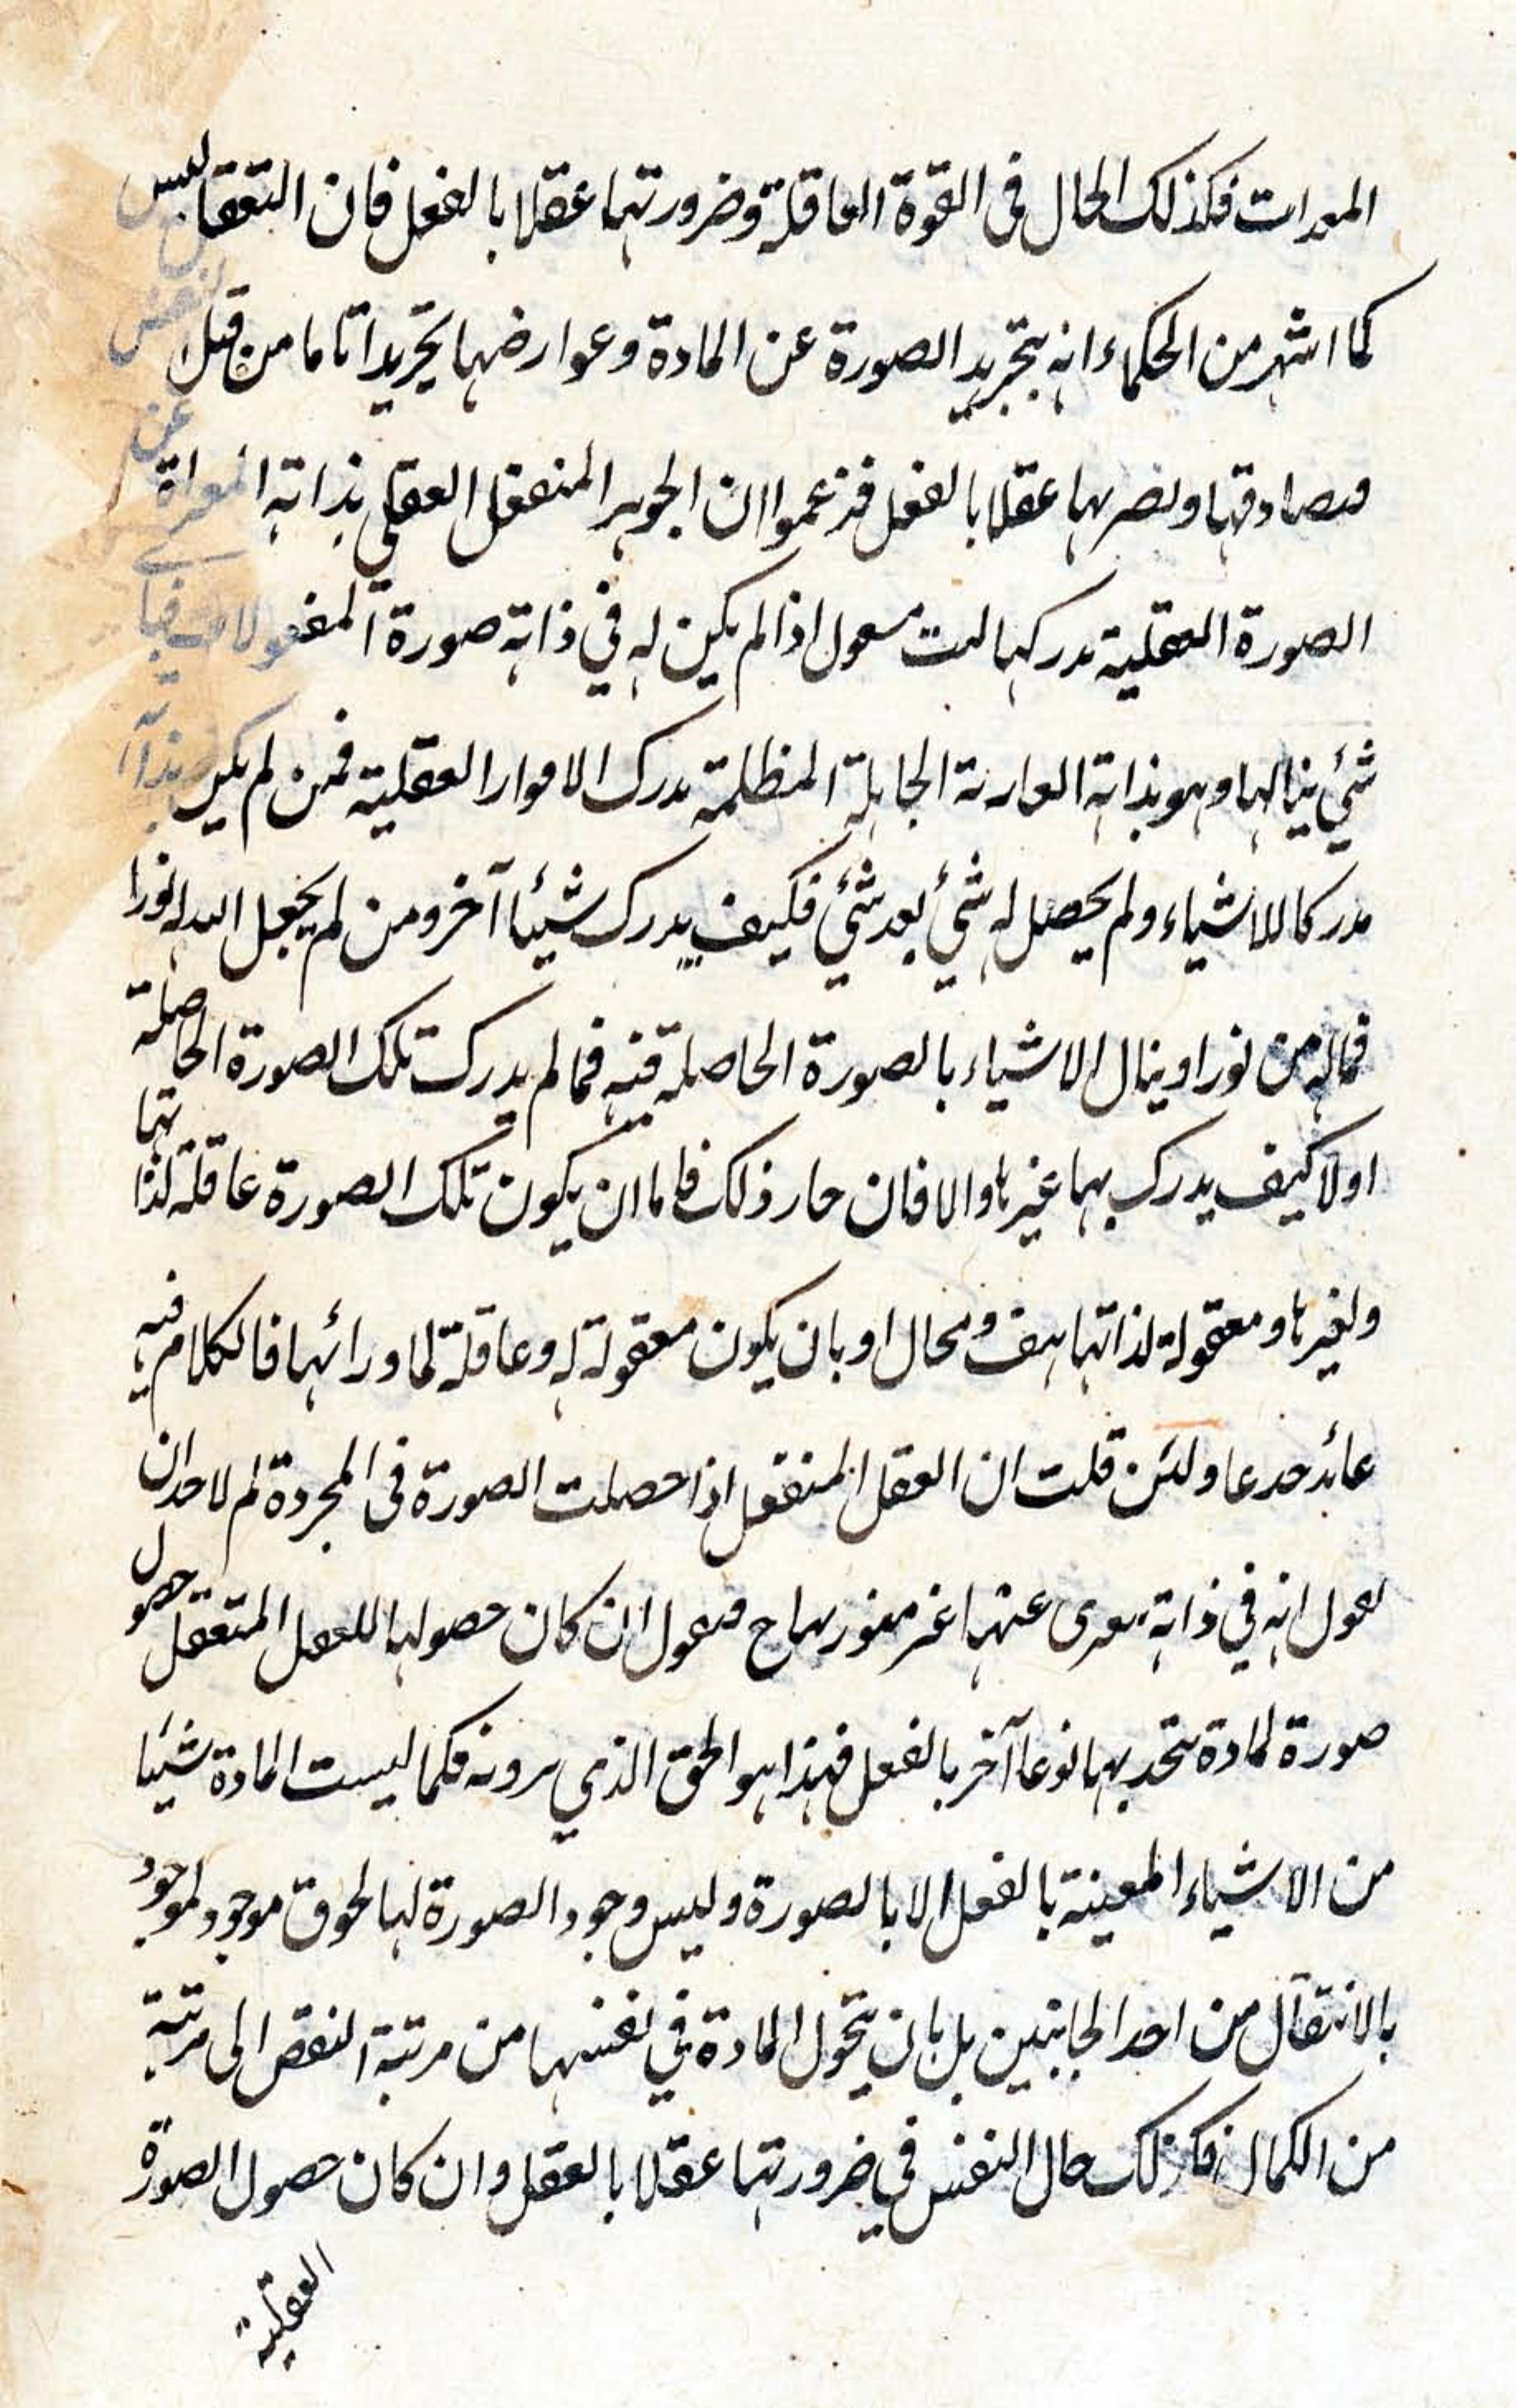 المدرات فكذلك الحال فى القوة العاقلة وضرورتها عقلا بالفعل فان التعقل ليس
كما اشهر من الحكماء انه بتجريد الصورة عن المادة وعوارضها تجريدا تاما من قبل النفس
ومصادقها ونصرها عقلا بالفعل فزعموا ان الجوهر المنفعل العقلي بذاته المعراة عن
الصورة العقلية يدركها اذا لم يكن له في ذاته صورة المعقولات فبأ
شئ ينالها وهو بذاته العارية الجاهلة المظلمة يدرك الاموار العقلية فمن لم يكن بذا
مدركا للاشياء ولم يحصل له شئ بعد شئ فكيف يدرك شيئا آخر ومن لم يجعل الله له نورا
فماله من نور او ينال الاشياء بالصورة الحاصلة فيه فما لم يدرك تلك الصورة الحاصلة
اولا كيف يدرك بها غيرها والا فان حار ذلك فاما ان يكون تلك الصورة عاقلة لذاتها
ولغيرها ومعقولة لذاتها هف ومحال او بان يكون معقولة له وعاقلة لما ورائها فالكلام فيه
عائد حد عا ولئن قلت ان العقل المنفعل اذا حصلت الصورة فى المجردة لم لاحد ان
يعول انه في ذاته معرى عنها غير منور بها ح فيعول ان كان حصولها للعقل المتعقل حصول
صورة لمادة يتحد بها نوعا آخر بالفعل فهذا هو الحق الذي يرونه فكما ليست المادة شيئا
من الاشياء المعينة بالفعل الا بالصورة وليس وجود الصورة لها لحوق موجود لموجود
بالانتقال من احد الجانبين بل بان يتحول المادة في نفسها من مرتبة النقص الى مرتبة
من الكمال فكذلك حال النفس في ضرورتها عقلا بالعقل وان كان حصول الصورة
العقلية